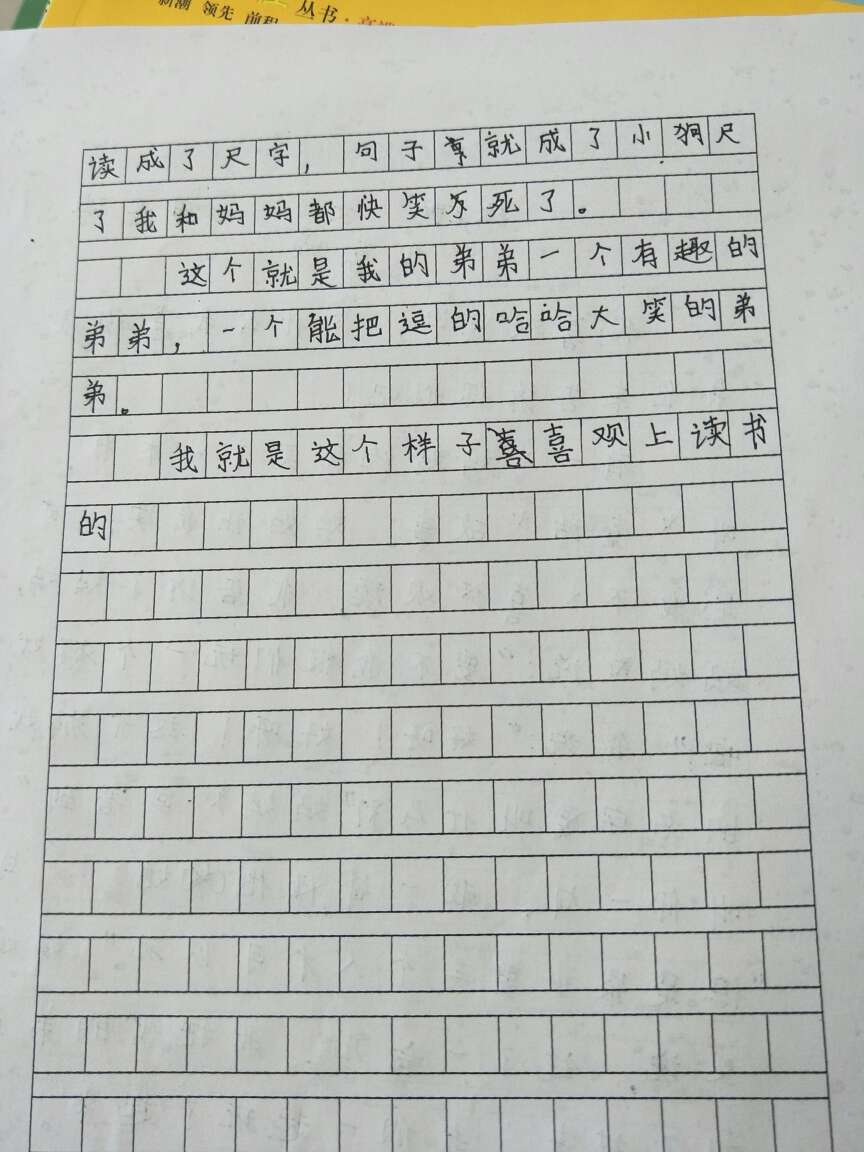 新潮 领先 前程 丛书·
读成了尺字，句子就成了小狗尺
了我和妈妈都快笑死了。
这个就是我的弟弟一个有趣的
弟弟，一个能把逗的哈哈大笑的弟
弟。
我就是这个样子喜欢上读书
的